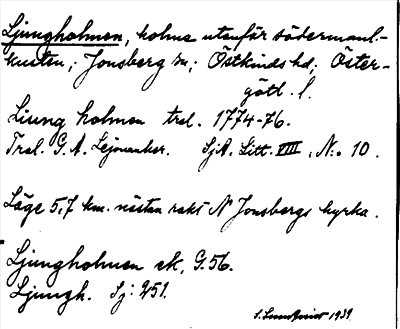 Ljungholmen, holme utanför södermanl.-
kusten, Jonsberg sn; Östkinds hd, Öster-
götl. l.
Liung holmen tral. 1774-76.
Tral. G. A. Lejonanker. SjA. Litt. VIII, N:o 10.
Läge 5,7 km. nästan rakt N Jonsbergs kyrka.
Ljungholmen ek, G.56.
Ljungh. Sj: 251.
1939.